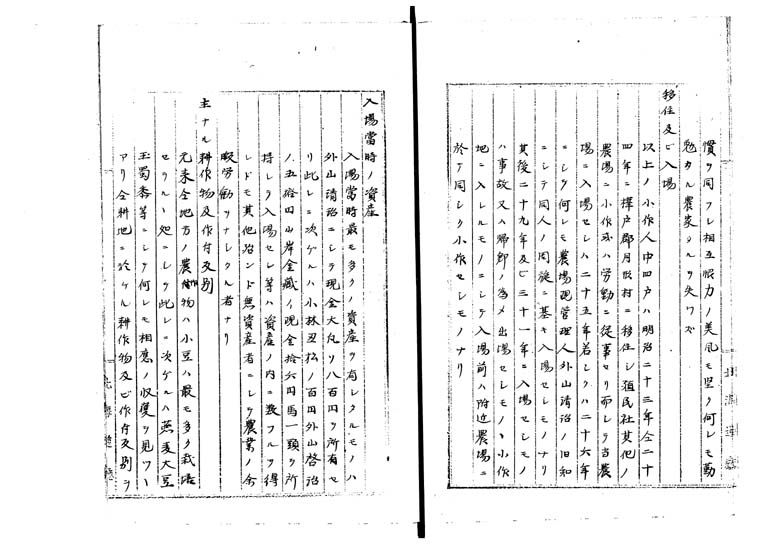 慣ヲ同フシ相互恨力ノ美風モ堅ク何レモ勤
勉ナル農家タルヲ失ワズ
移住及ビ入場
以上ノ小作人中四戸ハ明治二十三年仝二十
四年ニ樺戸郡月形村ニ移住シ殖民社其他ノ
農場ニ小作又ハ労働ニ従事セリ而シテ当農
場ニ入場セシハ二十五年若シクハ二十六年
ニシテ何レモ農場現管理人外山清治ノ旧知
ニシテ同人ノ周旋ニ基キ入場セシモノナリ
其後二十九年及ビ三十一年ニ入場セシモノ
ハ事故又ハ帰郷ノ為メ出場セシモノヽ小作
地ニ入レルモノニシテ入場前ハ附近農場ニ
於テ同シク小作セシモノナリ
入場當時ノ資産
入場當時最モ多クノ資産ヲ有シタルモノハ
外山清治ニシテ現金大凡ソ八百円ヲ所有セ
リ此レニ次グルハ小林丑松ノ百円外山啓治
ノ五拾四山岸金蔵ノ現金拾六円馬一頭ヲ所
持シテ入場セシ等ハ資産ノ内ニ数フルヲ得
レドモ其他殆ンド無資産者ニシテ農業ノ余
暇労働ヲナシタル者ナリ
主ナル耕作物及作付反別
元来仝地方ノ農作物ハ小豆ハ最モ多ク栽培
セラルヽ処ニシテ此レニ次グルハ燕麦大豆
玉蜀黍等ニシテ何レモ相應ノ収穫ヲ見ツヽ
アリ今耕地ニ於ケル耕作物及ビ作付反別ヲ
北海道廳